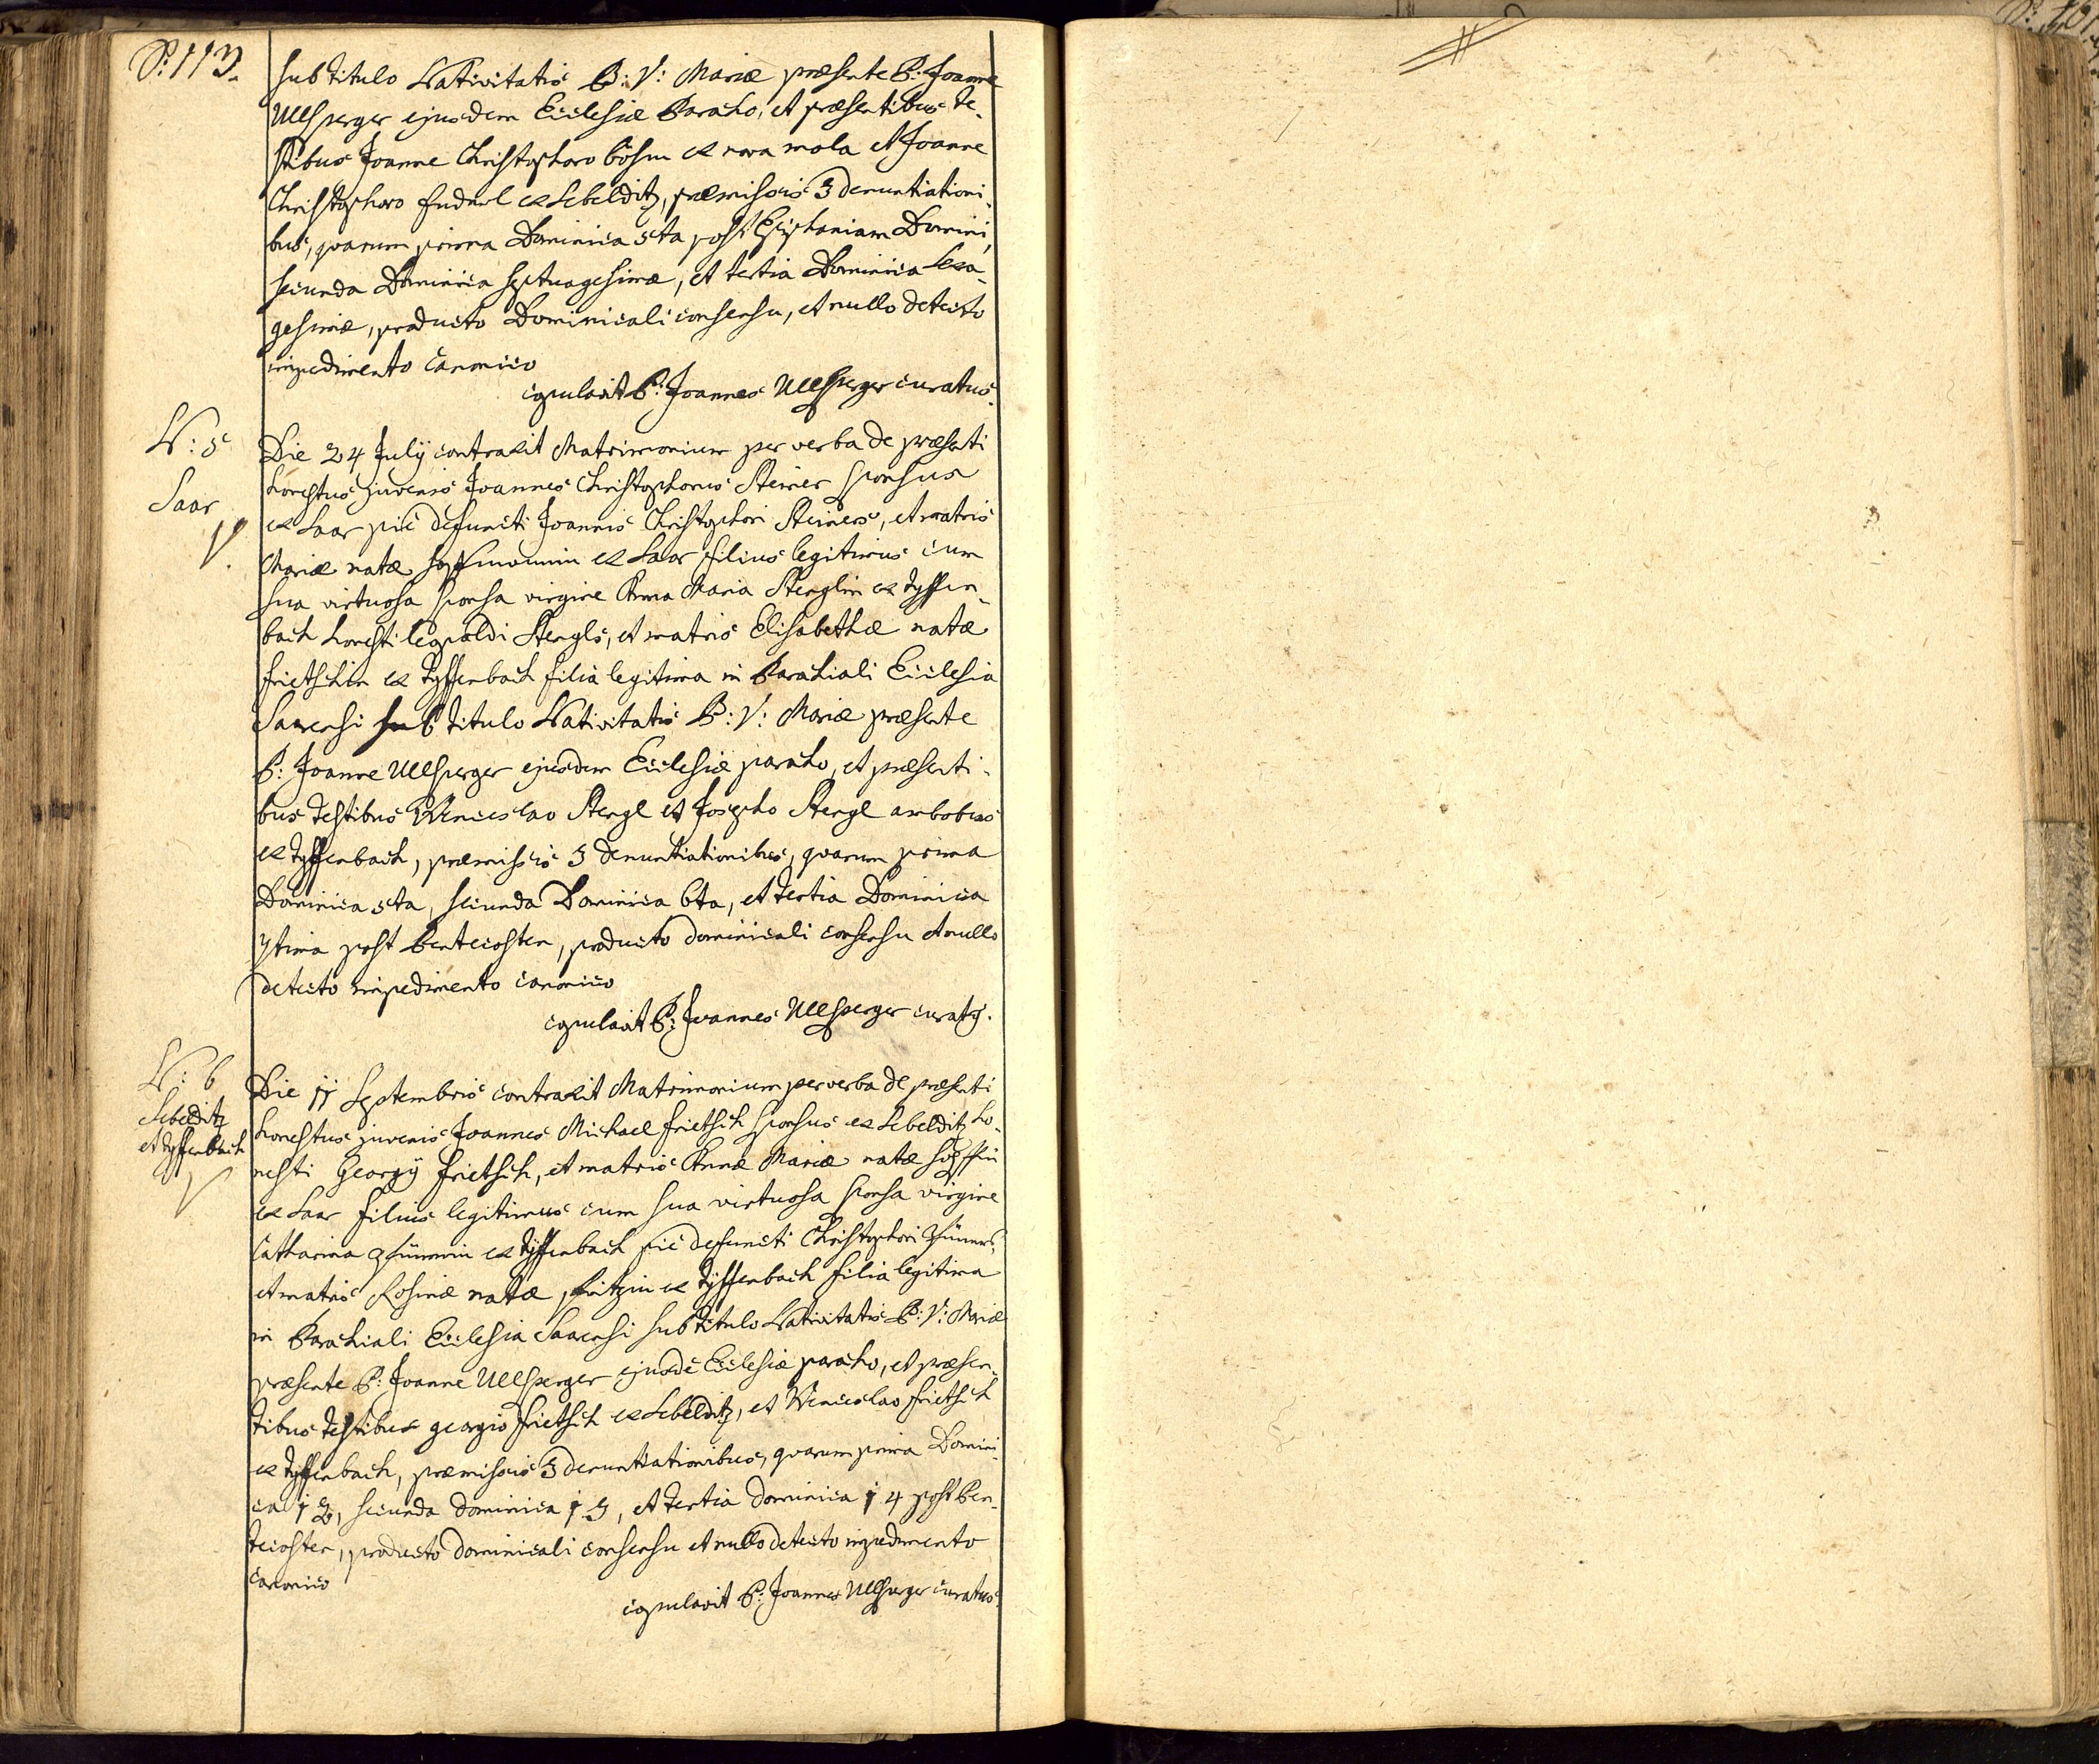 P: 113.
sub titulo Nativitatis B: V: Mariæ præsente P: Joanne
Ullsperger ejusdem Ecclesiæ Parocho, et præsentibus te-
stibus Joanne Christophoro böhm ex nova mola et Joanne
Christophoro Enderl ex Sebelditz, præmissis 3 denuntiationi-
bus, quarum prima Dominica 5ta post Epiphaniam Domini,
secunda Dominica septuagesimæ, et tertia Dominica Sexa-
gesimæ, producto Dominicali consensu, et nullo detecto
impedimento canonico
copulavit P: Joannes Ullsperger curatus.
N: 5
Saar
Die 24 July contraxit Matrimonium per verba de præsenti
honestus juvenis Joannes Christophorus Steiner sponsus
ex Saar pie defuncti Joannis Christophori Steiners, et matris
Mariæ natæ ex Saar filius legitimus cum
sua virtuosa sponsa virgine Anna Maria Stenglin ex Tyffen-
bach honesti leopoldi Stengls, et matris Elisabethæ natæ
frietschin ex Tyffenbach filia legitima in Parochiali Ecclesia
Saarensi sub titulo Nativitatis B: V: Mariæ præsente
P: Joanne Ullsperger ejusdem Ecclesiæ parocho, et præsenti-
bus testibus Wenceslao Stengl et Josepho Stengl ambobus
ex Tyffenbach, præmissis 3 denuntiationibus, quarum prima
Dominica 5ta, secunda Dominica 6ta, et tertia Dominica
7tima post Pentecosten, producto dominicali consensu et nullo
detecto impedimento canonico
copulavit P: Joannes Ullsperger curatg.
N: 6
Sebelditz
et Tyffenbach
Die 11 Septembris contraxit Matrimonium per verba de præsenti
honestus juvenis Joannes Michael frietsch sponsus ex Sebelditz ho-
nesti Georgy frietsch, et matris Annæ Mariæ natæ
ex Saar filius legitimus cum sua virtuosa sponsa virgine
Catharina ex Tyffenbach pie defuncti Christophori
et matris Rosinæ natæ ex Tyffenbach filia legitima
in Parochiali Ecclesia Saarensi sub titulo Nativitatis B: V: Mariæ
præsente P: Joanne Ullsperger ejusdē Ecclesiæ parocho, et præsen-
tibus testibus georgio frietsch ex Sebelditz, et Wenceslao frietsch
ex Tyffenbach, præmissis 3 denuntiationibus, quarum prima Domini-
ca 12, secunda dominica 13, et tertia dominica 14 post Pen-
tecosten, producto dominicali consensu et nullo detecto impedimento
canonico
copulavit P: Joannes Ullsperger curatus.